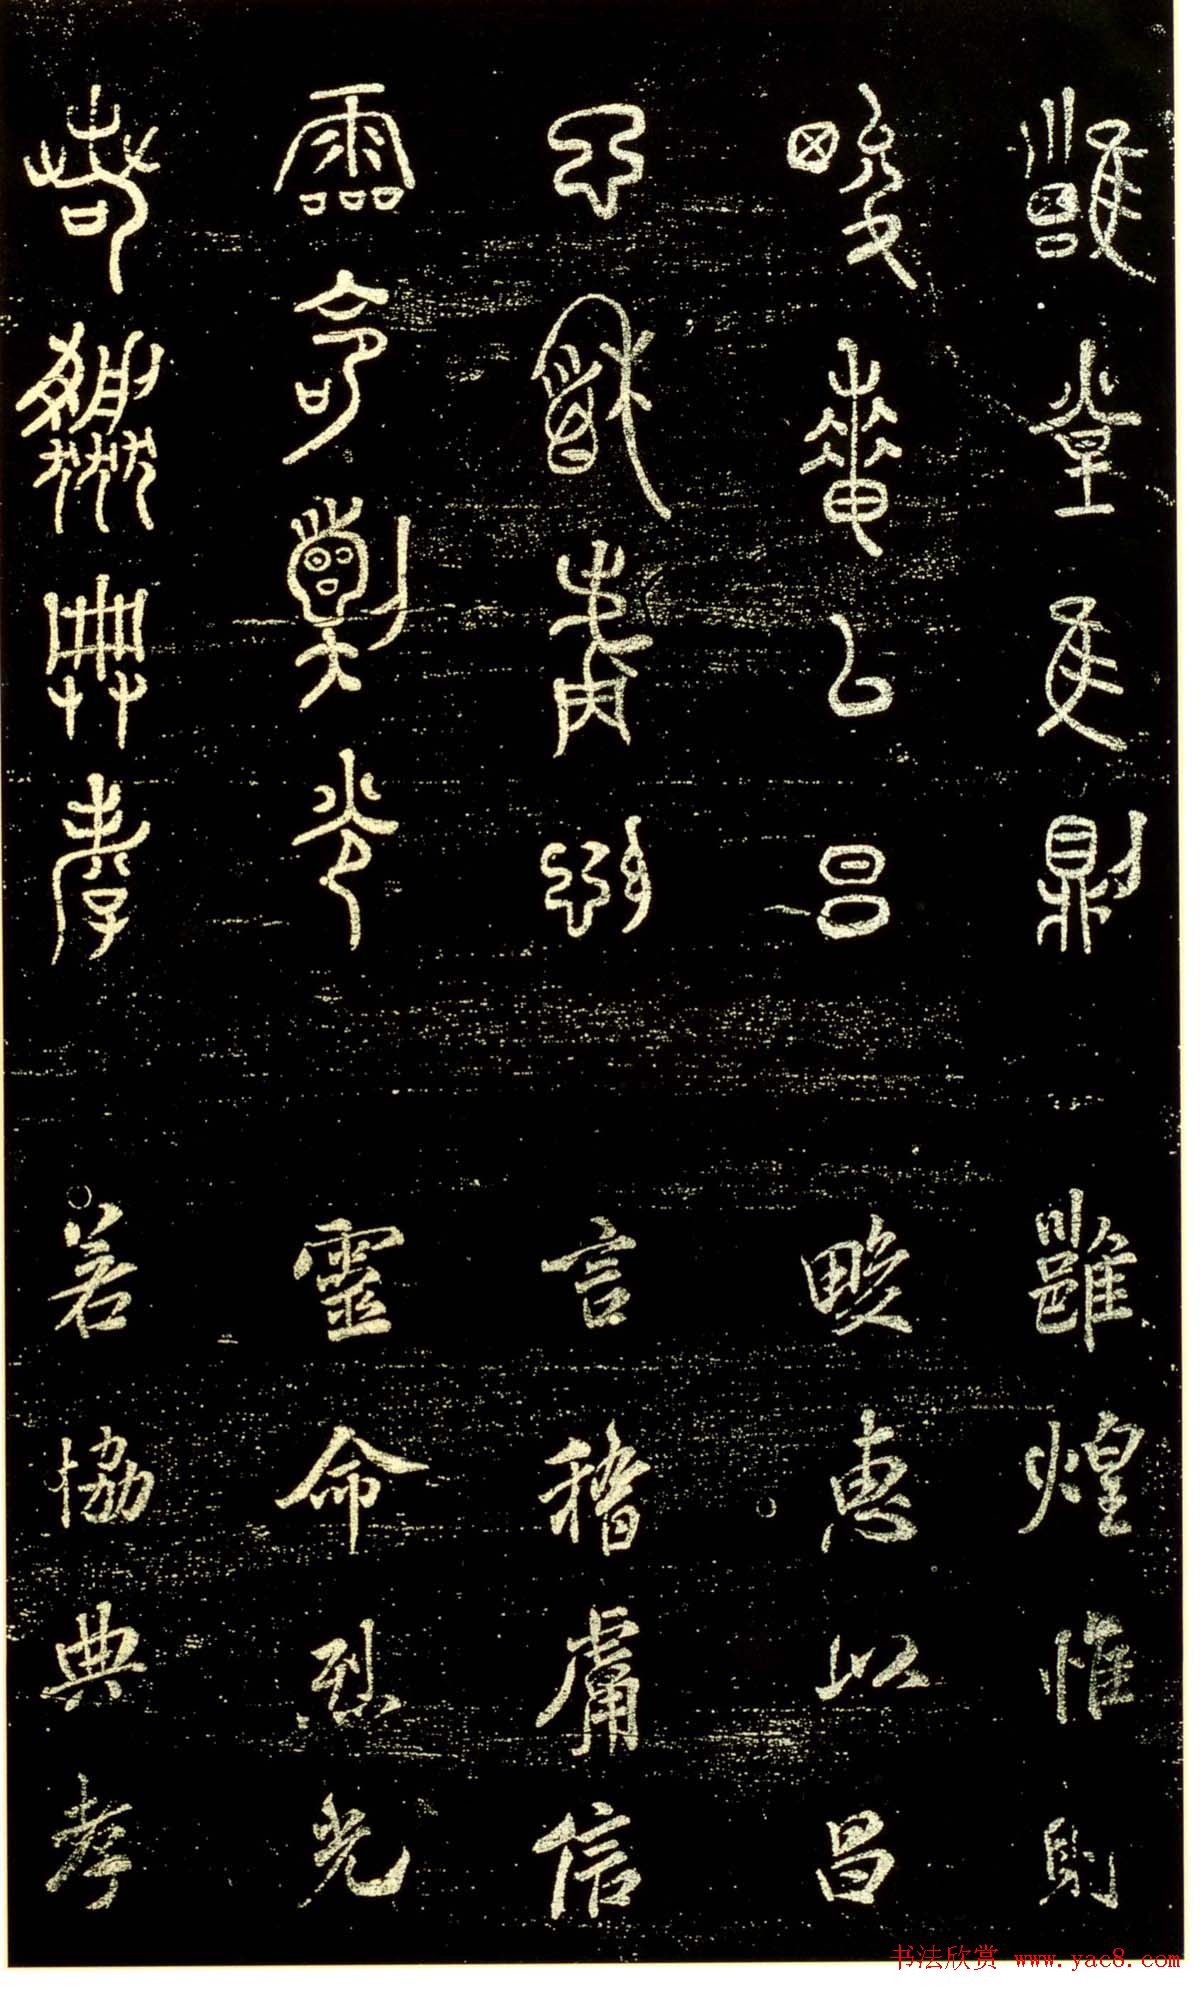 雝煌惟則
畯惠以昌
言稽庸信
靈命烈光
若協典孝
雝煌惟則
畯惠以昌
言稽庸信
靈命烈光
若協典孝
书法欣赏 www.yac8.com